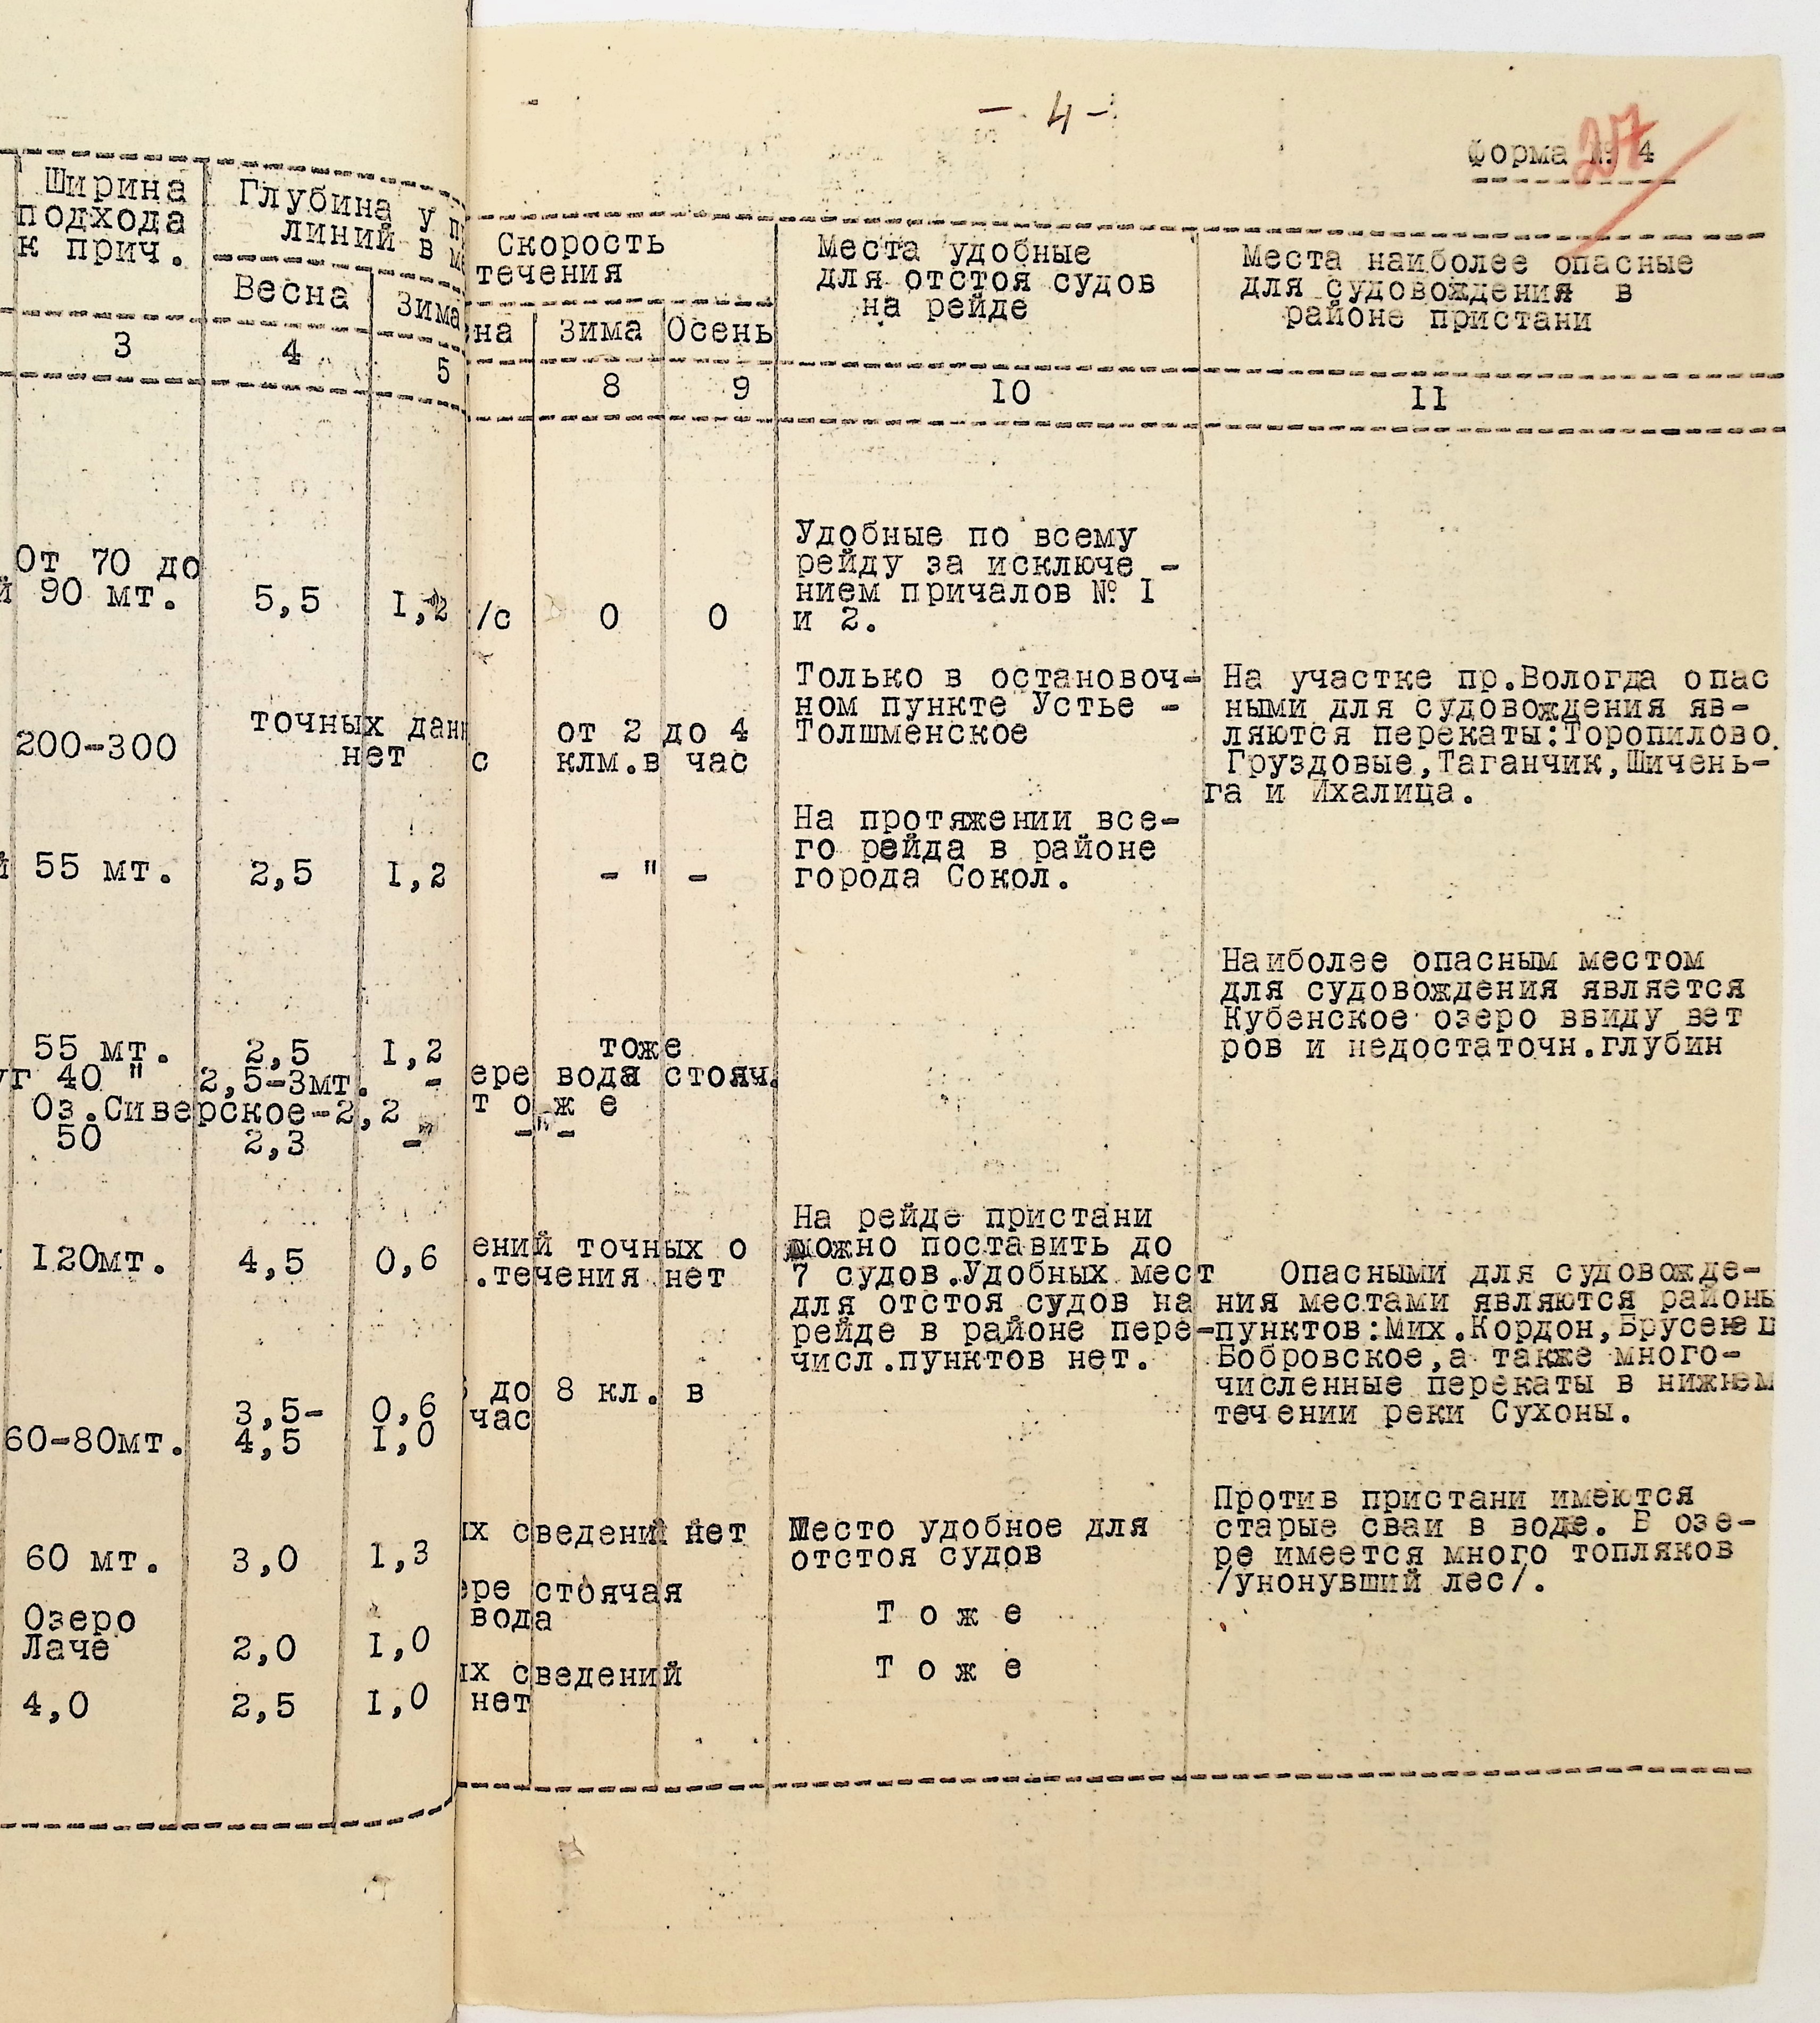 Ширина
подхода
к прич.
Глубина у
линий в
Весна
Зима
3
4
5
От 70 до
90 мт.
5,5
1,2
200-300
точных дан
нет
55 мт.
2,5
1,2
55 мт.
2,5
1,2
уг 40 "
2,5-3мт.
-
Оз.Сиверское-2,2
50
2,3
-
120мт.
4,5
0,6
3,5-
0,6
60-80мт.
4,5
1,0
60 мт.
3,0
1,3
Озеро
Лаче
2,0
1,0
4,0
2,5
1,0
- 4 -
27
Форма № 4
Скорость
течения
на
Зима
Осень
Места удобные
для отстоя судов
на рейде
Места наиболее опасные
для судовождения в
районе пристани
8
9
10
11
/с
0
0
Удобные по всему
рейду за исключе -
нием причалов № 1
и 2.
с
от 2 до 4
клм.в час
Только в остановоч-
ном пункте Устье -
Толшменское
На участке пр.Вологда опас
ными для судовождения яв-
ляются перекаты:Торопилово,
Груздовые,Таганчик,Шичень-
га и Ихалица.
- " -
На протяжении все-
го рейда в районе
города Сокол.
Наиболее опасным местом
для судовождения является
Кубенское озеро ввиду вет
ров и недостаточн.глубин
тоже
ере вода стояч.
т о ж е
-"-
ений точных о
.течения нет
На рейде пристани
можно поставить до
7 судов.Удобных мест
для отстоя судов на
рейде в районе пере-
числ.пунктов нет.
Опасными для судовожде-
ния местами являются районы
пунктов:Мих.Кордон,Брусенец
Бобровское,а также много-
численные перекаты в нижнем
течении реки Сухоны.
до 8 кл. в
час
их сведений нет
Место удобное для
отстоя судов
Против пристани имеются
старые сваи в воде. В озе-
ре имеется много топляков
/унонувший лес/.
ере стоячая
вода
Т о ж е
их сведений
нет
Т о ж е